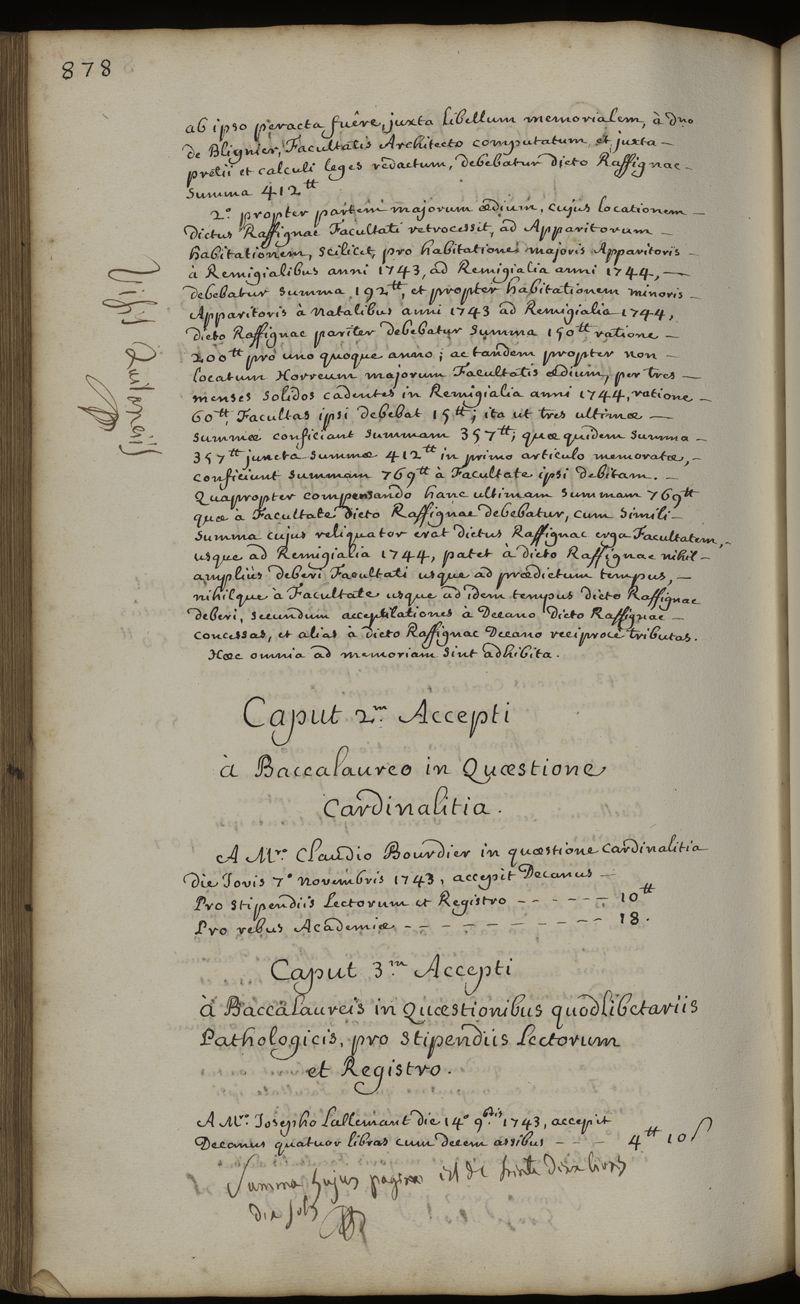 878
ab ipso peracta fuêre, juxta libellum memorialem, à Dno
de Blignier, Facultatis Architecto computatum, et juxta -
pretii et calculi leges redactum, debebatur dicto Raffignac -
Summa 412 tt
2º propter partem majorum ædium, cujus locationem -
dictus Raffignac Facultati retrocessit, ad Apparitorum -
habitationem, scilicet, pro habitatione majoris Apparitoris -
à Remigialibus anni 1743, ad Remigialia anni 1744, -
debebatur summa 192 tt, et propter habitationem minoris -
Apparitoris à natalibus anni 1743 ad Remigialia 1744,
dicto Raffignac pariter debebatur summa 150 tt ratione -
200 tt pro uno quoque anno; ac tandem propter non -
locatum Horreum majorum Facultatis ædium, per tres -
menses solidos cadentes in Remigialia anni 1744, ratione -
60 tt, Facultas ipsi debebat 15 tt; ita ut tres ultimæ -
summæ conficiant summam 357 tt; quæ quidem summa -
357 tt juncta summæ 412 tt in primo articulo memoratæ, -
conficiunt summam 769 tt à Facultate ipsi debitam. -
Quapropter compensando hanc ultimam summam 769 tt
quæ a Facultate dicto Raffignac debebatur, cum simili -
summa cujus reliquator erat dictus Raffignac erga Facultatem, -
usque ad Remigialia 1744, patet à dicto Raffignac nihil -
ampliùs deberi Facultati usque ad prædictum tempus, -
nihilque à Facultate usque ad idem tempus dicto Raffignac
deberi, secundum acceptilationes à Decano dicto Raffignac -
concessas, et alias à dicto Raffignac Decano reciproce tributas.
Hæc omnia ad memoriam sint adhibita.
Caput 2.m Accepti
à Baccalaureo in Quæstione
Cardinalitia.
A Mro Claudio Bourdier in quæstione Cardinalitia
die Jovis 7º novembris 1743, accepit Decanus -
Pro Stipendiis Lectorum et Registro - - - - - 10 tt
Pro rebus Academiæ - - - - - - - - - 18.
Caput 3.m Accepti
à Baccalaureis in Quæstionibus quodlibetariis
Pathologicis, pro Stipendiis Lectorum
et Registro.
A Mro Josepho Lallemant die 14º 9bris 1743, accepit
Decanus quatuor libras cum decem assibus - - - 4 tt 10 s
Summa hujus paginæ est de trente deux livres
dix sols